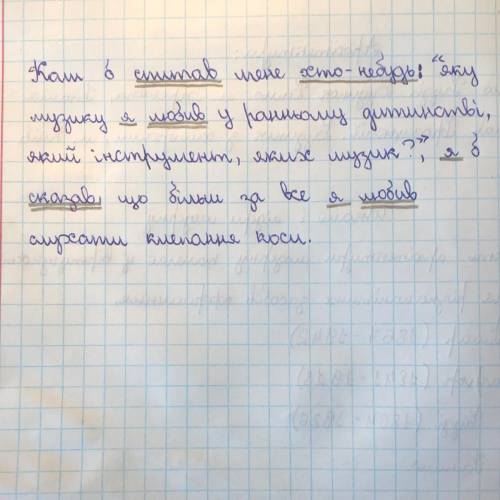 Коли б спитав мене хто-небудь: "яку
музику я любив у ранньому дитинстві,
який інструмент, яких музик?", я б
сказав, що більш за все я любив
слухати клепання коси.